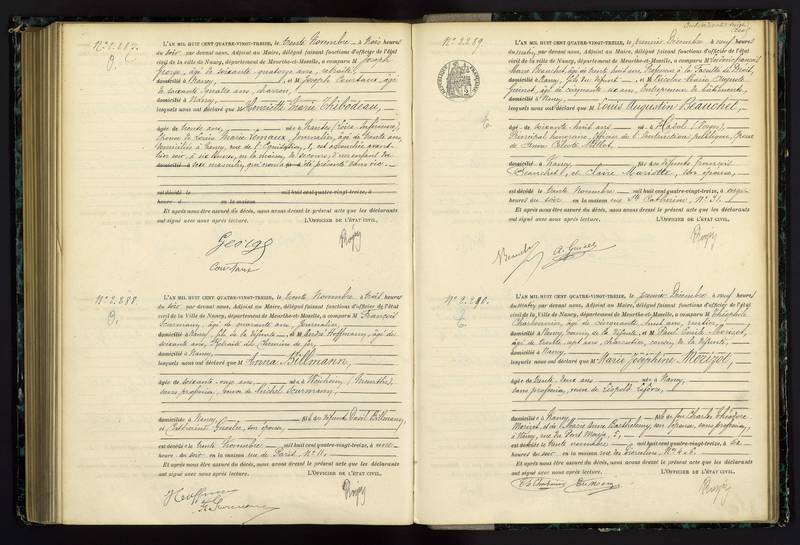 N° 2.287.
L'AN MIL HUIT CENT QUATRE-VINGT-TREIZE, le trente Novembre à trois heures
du soir par devant nous, Adjoint au Maire, délégué faisant fonctions d'officier de l'état
civil de la Ville de Nancy, département de Meurthe-et-Moselle, a comparu M Joseph
George, âgé de soixante quatorze ans, retraité,
domicilié à Nancy, et M Joseph Courtaux, âgé
de soixante quatre ans, charron,
domicilié à Nancy,
lesquels nous ont déclaré que Henriette Marie Thibodeau,
âgée de trente ans, née à Nantes (Loire Inférieure),
Journalier, âgé de trente ans,
domiciliés à Nancy, rue de l'Equitation, 1, est accouchée avant-
hier soir, à six heures, en la maison de secours, d'un enfant du
sexe masculin, qui nous a été présenté sans vie.
est décédé le mil huit cent quatre-vingt-treize, à
heure à en la maison
Et après nous être assuré du décès, nous avons dressé le présent acte que les déclarants
ont signé avec nous après lecture. L'OFFICIER DE L'ÉTAT CIVIL,
George
Courtaux
N° 2.288.
L'AN MIL HUIT CENT QUATRE-VINGT-TREIZE, le trente Novembre à trois heures
du soir par devant nous, Adjoint au Maire, délégué faisant fonctions d'officier de l'état
civil de la Ville de Nancy, département de Meurthe-et-Moselle, a comparu M François
âgé de quarante ans, Journalier,
domicilié à Nancy, fils de la défunte et M André Hoffmann, âgé de
soixante ans, Retraité du Chemin de fer,
domicilié à Nancy,
lesquels nous ont déclaré que Anna Billmann,
âgée de soixante onze ans, née à (Meurthe),
sans profession, veuve de Michel
domiciliée à Nancy, fille des défunts David Billmann,
et Catherine son épouse,
est décédée le trente Novembre mil huit cent quatre-vingt-treize, à onze
heures du soir en la maison rue de Paris N° 11.
Et après nous être assuré du décès, nous avons dressé le présent acte que les déclarants
ont signé avec nous après lecture. L'OFFICIER DE L'ÉTAT CIVIL,
Hoffmann
N° 2289
L'AN MIL HUIT CENT QUATRE-VINGT-TREIZE, le premier Décembre à neuf heures
du matin, par devant nous, Adjoint au Maire, délégué faisant fonctions d'officier de l'état
civil de la ville de Nancy, département de Meurthe-et-Moselle, a comparu M
Marie Beauchet, âgé de trente huit ans, Professeur à la Faculté de Droit,
domicilié à Nancy, fils du défunt et M Nicolas August
Guinet, âgé de cinquante ans, Entrepreneur de bâtiments,
domicilié à Nancy,
lesquels nous ont déclaré que Louis Augustin Beauchet,
âgé de soixante huit ans, né à (Vosges),
Principal honoraire, Officier de l'Instruction publique, époux
de Anne Millot,
domicilié à Nancy, fils des défunts François
Beauchet, et Claire Mariotte, son épouse,
est décédé le trente Novembre mil huit cent quatre-vingt-treize, à
heures du soir en la maison rue Ste Catherine N° 31.
Et après nous être assuré du décès, nous avons dressé le présent acte que les déclarants
ont signé avec nous après lecture. L'OFFICIER DE L'ÉTAT CIVIL,
Beauchet
A. Guinet
N° 2.290.
L'AN MIL HUIT CENT QUATRE-VINGT-TREIZE, le premier Décembre à neuf heures
du matin, par devant nous, Adjoint au Maire, délégué faisant fonctions d'officier de l'état
civil de la Ville de Nancy, département de Meurthe-et-Moselle, a comparu M Théophile
âgé de cinquante huit ans, rentier,
domicilié à Nancy, de la défunte et M Paul Emile
âgé de trente sept ans, cousin de la défunte,
domicilié à Nancy,
lesquels nous ont déclaré que Marie Joséphine Morizot,
âgée de trente deux ans, née à Nancy,
sans profession, veuve de Léopold
domiciliée à Nancy, fille de feu Charles Théodore
Morizot, et de Marie Anne Barthélemy, son épouse, sans profession,
à Nancy, rue du Pont Mouja, 5,
est décédée le trente novembre mil huit cent quatre-vingt-treize, à six
heures du soir en la maison rue N° 4 & 6.
Et après nous être assuré du décès, nous avons dressé le présent acte que les déclarants
ont signé avec nous après lecture. L'OFFICIER DE L'ÉTAT CIVIL,